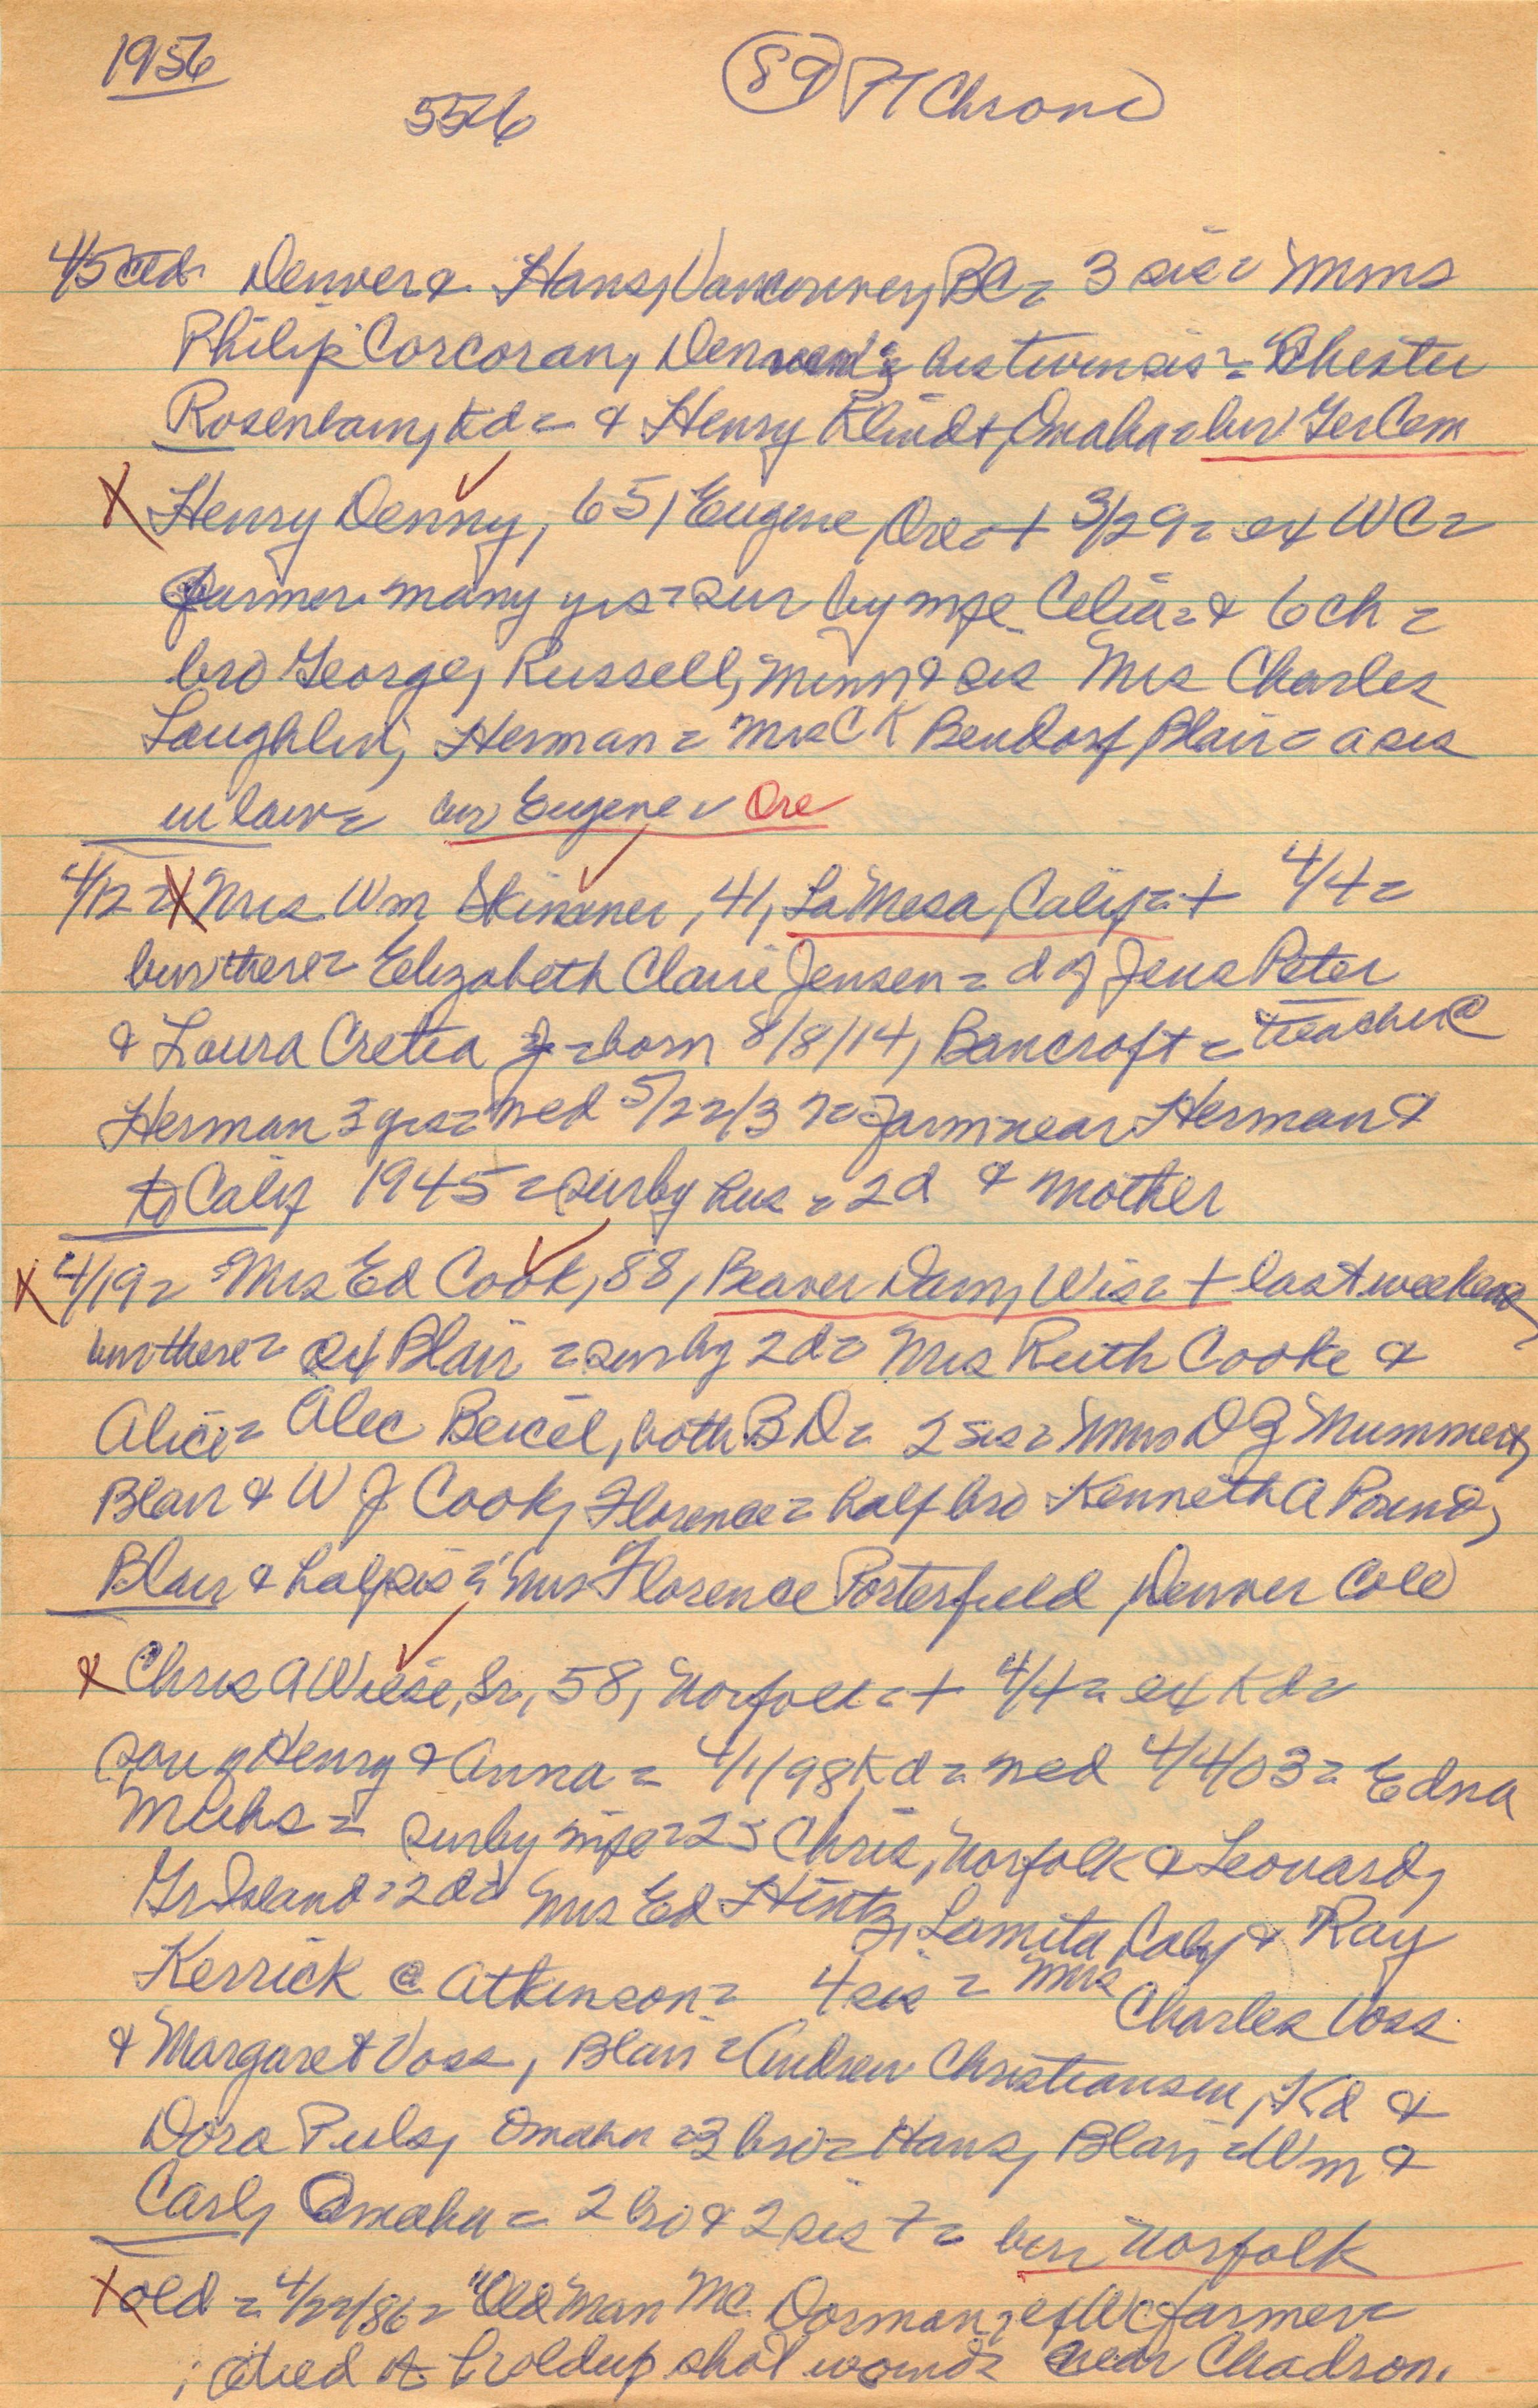 1956
5546
89 71 Chrono
4/5 ctd. Denver & Hans, Vancouver, BC = 3 sis = Mmes
Philip Corcoran, Denver = his twin sis = Chester
Rosenbaum, Kd = & Henry Klindt, Omaha = bur Ger Cem
X Henry Denny, 65, Eugene, Ore = + 3/29 = ex WC =
farmer many yrs = sur by wife Celia = & 6 ch =
bro George, Russell, Minn & sis Mrs Charles
Laughlin, Herman = Mrs C K Bendorf, Blair = a sis
in law = bur Eugene = Ore
4/12 = X Mrs Wm Skinner, 41, La Mesa, Calif = + 4/4 =
bur there = Elizabeth Claire Jensen = d of Jens Peter
& Laura Cretia J = born 8/8/14, Bancroft = teacher @
Herman 3 yrs = wed 5/22/37 = farm near Herman &
to Calif 1945 = sur by hus = 2 d & mother
X 4/19 = Mrs Ed Cook, 88, Beaver Dam, Wis = + last weekend
bur there = ex Blair = sur by 2 d = Mrs Ruth Cooke &
Alice = Alec Beicel, both B D = 2 sis = Mmes D Z Mummert,
Blair & W J Cook, Florence = half bro Kenneth A Pound,
Blair & half sis = Mrs Florence Porterfield, Denver Colo
X Chris A Wiese, Sr, 58, Norfolk = + 4/4 = ex Kd =
son of Henry & Anna = 4/1/98 Kd = wed 4/4/03 = Edna
= sur by wife = 2 s Chris, Norfolk & Leonard,
Gr Island = 2 d = Mrs Ed Hintz, Lomita, Calif & Ray
Kerrick @ Atkinson = 4 sis = Mrs Charles Voss
& Margaret Voss, Blair = Andrew Christiansen, Kd &
Dora Puls, Omaha = 3 bro = Hans, Blair = Wm &
Carl, Omaha = 2 bro & 2 sis + = bur Norfolk
X old = 4/22/86 = "Old Man Mc Dorman, ex WC farmer =
died of holdup shot wounds near Chadron.